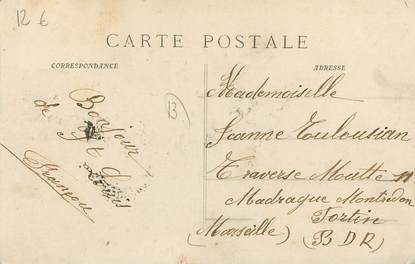 12 €
CARTE POSTALE
CORRESPONDANCE
ADRESSE
13
Bonjour
de
Louis
François
Mademoiselle
Jeanne Toulousian
Traverse Moutte 11
Madrague Montredon
Fortin
(Marseille) (B D R)